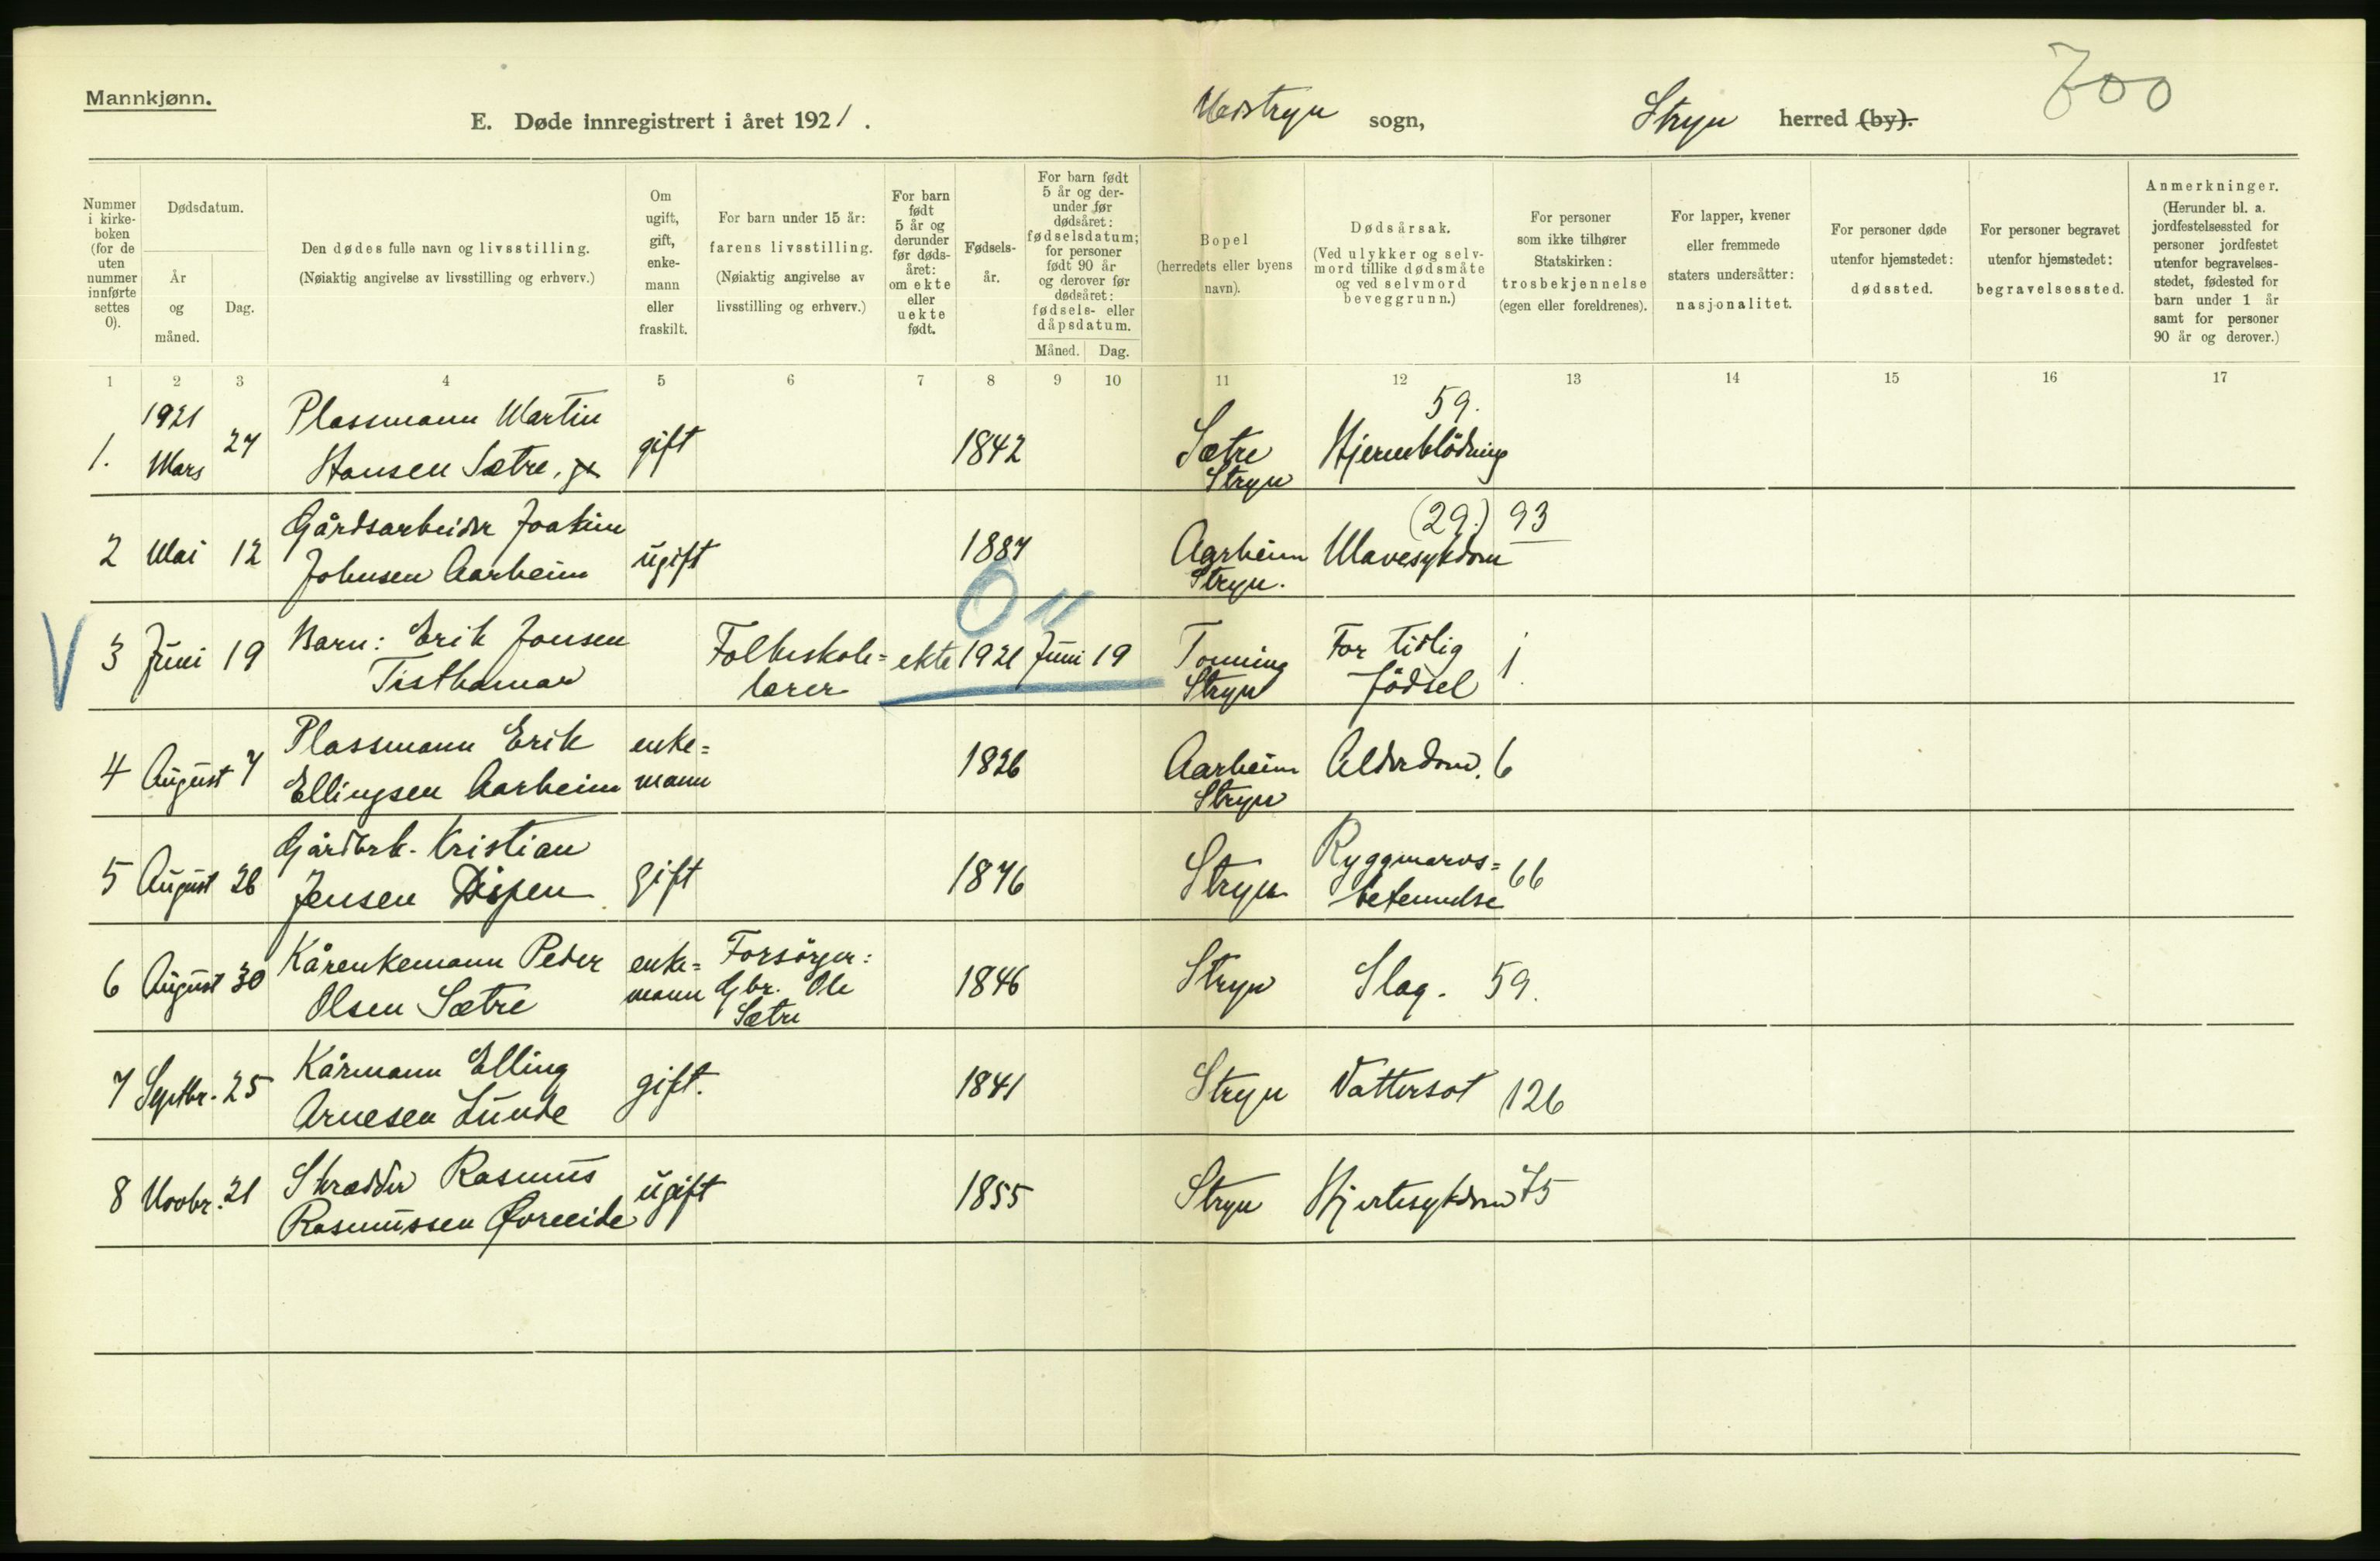 Mannkjønn.
E. Døde innregistrert i året 1921.
Nedstryn sogn,
Stryn herred (by).
700
Nummer i kirke-boken (for de uten nummer innførte settes 0).
Dødsdatum.
År og måned.
Dag.
Den dødes fulle navn og livsstilling.
(Nøiaktig angivelse av livsstilling og erhverv.)
Om ugift, gift, enke-mann eller fraskilt.
For barn under 15 år:
farens livsstilling.
(Nøiaktig angivelse av livsstilling og erhverv.)
For barn født 5 år og derunder før døds-året: om ekte eller uekte født.
Fødsels-år.
For barn født 5 år og der-under før dødsåret: fødselsdatum; for personer født 90 år og derover før dødsåret: fødsels- eller dåpsdatum.
Måned. Dag.
Bopel
(herredets eller byens navn).
Dødsårsak.
(Ved ulykker og selv-mord tillike dødsmåte og ved selvmord beveggrunn.)
For personer som ikke tilhører Statskirken:
trosbekjennelse
(egen eller foreldrenes).
For lapper, kvener eller fremmede staters undersåtter:
nasjonalitet.
For personer døde utenfor hjemstedet:
dødssted.
For personer begravet utenfor hjemstedet:
begravelsessted.
Anmerkninger.
(Herunder bl. a. jordfestelsessted for personer jordfestet utenfor begravelses-stedet, fødested for barn under 1 år samt for personer 90 år og derover.)
1 2 3 4 5 6 7 8 9 10 11 12 13 14 15 16 17
1. 1921 Mars 27 Plassmann Martin Hansen Sætre, gift 1842 Sætre Stryn Hjerneblödning 59.
2 Mai 12 Gårdsarbeider Joakim Johnsen Aarheim ugift 1887 Aarheim Stryn. Mavesykdom (29.) 93
3 Juni 19 Barn: Erik Jonsen Tisthamar Folkeskole=lærer ekte 1921 Juni 19 Tonning Stryn For tidlig födsel 1.
0 11
4 August 7 Plassmann Erik Ellingsen Aarheim enke=mann 1826 Aarheim Stryn Alderdom. 6
5 August 26 Gårdbrk. Kristian Jensen Dispen gift 1876 Stryn Ryggmarvs=betennelse 66
6 August 30 Kårenkemann Peder Olsen Sætre enke=mann Forsörger: Gbr. Ole Sætre 1846 Stryn Slag. 59.
7 Septbr. 25 Kårmann Elling Arnesen Lunde gift. 1841 Stryn Vattersot 126
8 Novbr. 21 Skrædder Rasmus Rasmussen Øvreeide ugift 1855 Stryn Hjertesykdom 75